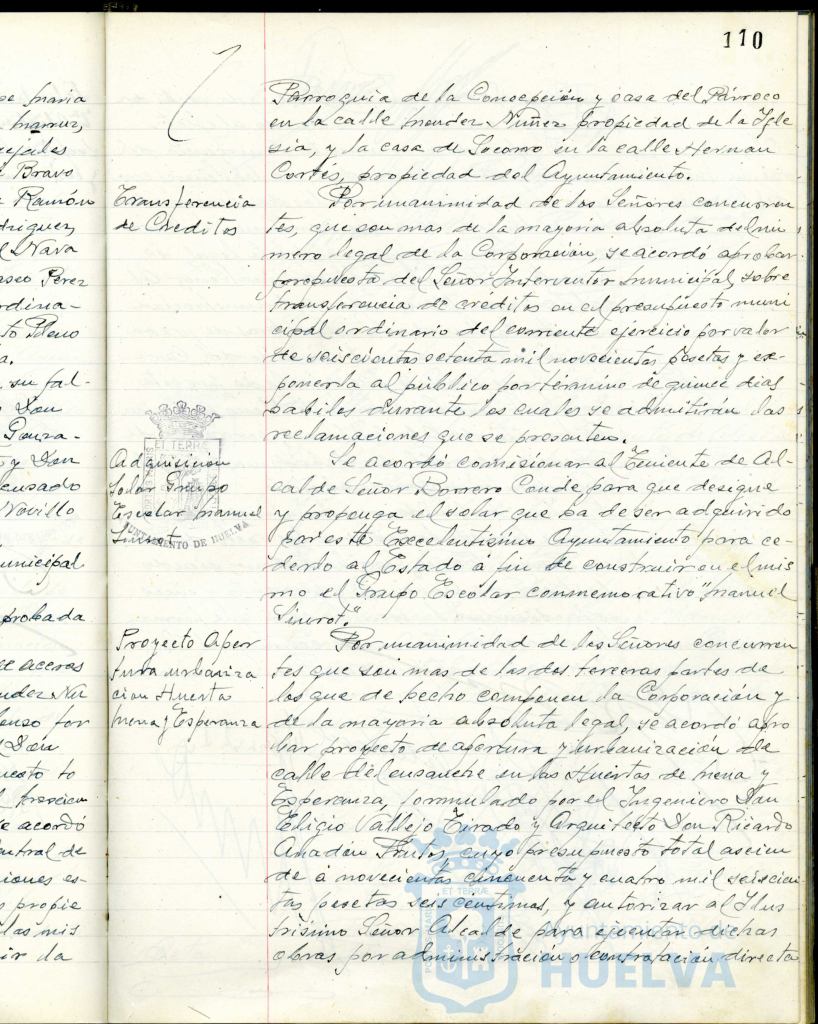 110
pe maria
ejales
Bravo
Ramón
driguez,
l Nava
Perez
rdina-
to Pleno
a.
su fal-
Don
Gonza-
y Don
cusado
Novillo
unicipal
probada
de aceras
ndez Nu
Don
uesto to
e acordó
entral de
ciones es-
s propie
las mis
ir la
Transferencia
de Creditos
Adquisición
Solar Grupo
Escolar Manuel
Siurot
Proyecto Aper
tura urbaniza
cion Huerta
Mena y Esperanza
Parroquia de la Concepción y casa del Párroco
en la calle Mendez Nuñez propiedad de la Igle
sia, y la casa de Socorro en la calle Hernan
Cortés, propiedad del Ayuntamiento.
Por unanimidad de los Señores concurren
tes, que son mas de la mayoria absoluta del nú
mero legal de la Corporación, se acordó aprobar
propuesta del Señor Interventor municipal, sobre
transferencia de créditos en el presupuesto muni
cipal ordinario del corriente ejercicio por valor
de seiscientas setenta mil novecientas pesetas y ex-
ponerla al público por término de quince dias
habiles durante los cuales se admitirán las
reclamaciones que se presenten.
Se acordó comisionar al Teniente de Al-
calde Señor Borrero Conde, para que designe
y proponga el solar que ha de ser adquirido
por este Excelentisimo Ayuntamiento para ce-
derlo al Estado á fin de construir en el mis
mo el Grupo Escolar conmemorativo "Manuel
Siurot."
Por unanimidad de los Señores concurren
tes que son mas de las dos terceras partes de
los que de hecho componen la Corporación y
de la mayoria absoluta legal, se acordó apro
bar proyecto de apertura y urbanización de
calle del ensanche en las Huertas de Mena y
Esperanza, formulado por el Ingeniero Don
Eligio Vallejo Tirado y Arquitecto Don Ricardo
Anadón Frutos, cuyo presupuesto total ascien
de á novecientas cincuenta y cuatro mil seiscien
tas pesetas seis centimas, y autorizar al Ilus
trisimo Señor Alcalde para ejecutar dichas
obras por administración o contratación directa
AYUNTAMIENTO DE HUELVA
Ayuntamiento de
HUELVA